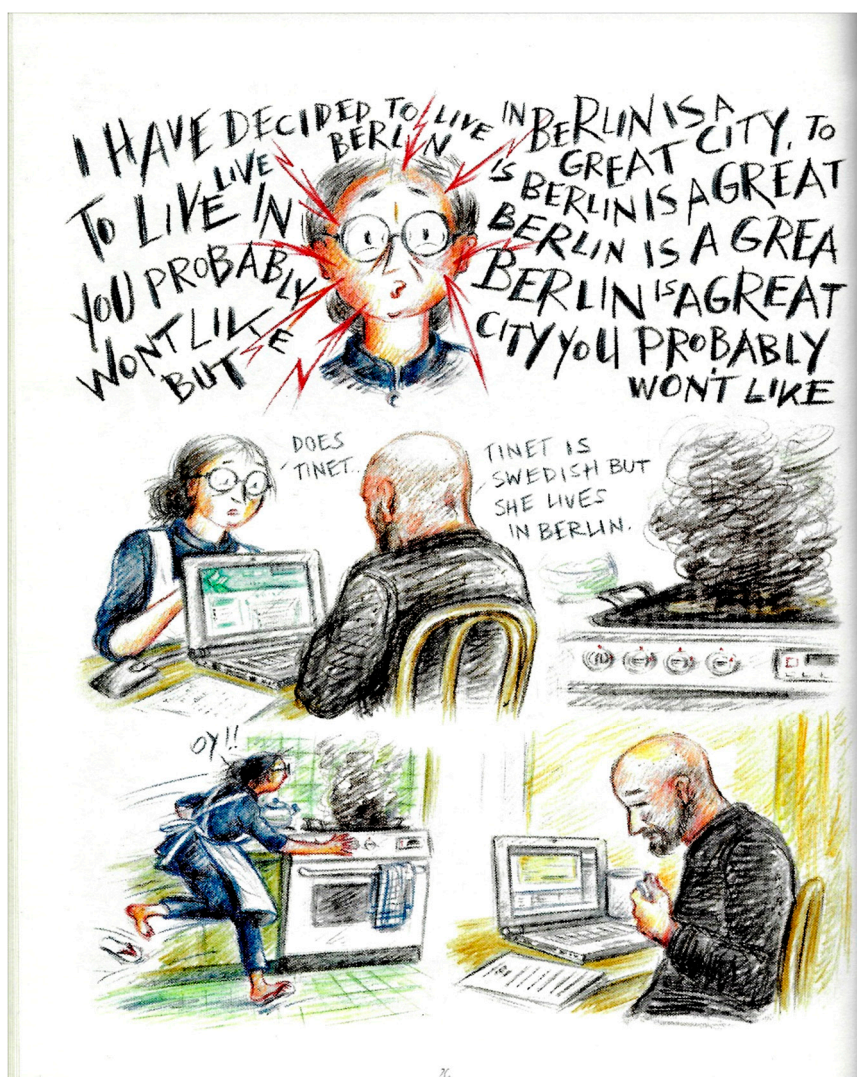 I HAVE DECIDED TO LIVE IN
BERLIN
LIVE
TO LIVE IN
YOU PROBABLY
WONT LIKE
BUT
BERLIN IS A
GREAT CITY, TO
IS BERLIN IS A GREAT
BERLIN IS A GREA
BERLIN IS A GREAT
CITY YOU PROBABLY
WON'T LIKE
DOES
TINET..
TINET IS
SWEDISH BUT
SHE LIVES
IN BERLIN.
OY!!